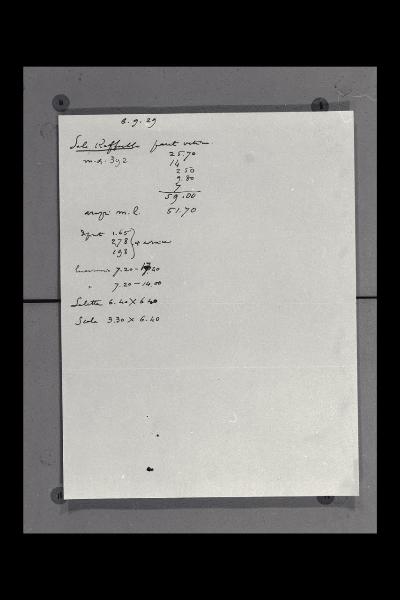 8.9.29
Sala Raffaello
m.q. 392
25.70
14
2.50
9.80
7
59.00
m.l. 51.70
1.65
2.78
1.93
7.20 -
" 7.20 - 14.00
Saletta 6.40 X 6.40
Scala 3.30 X 6.40